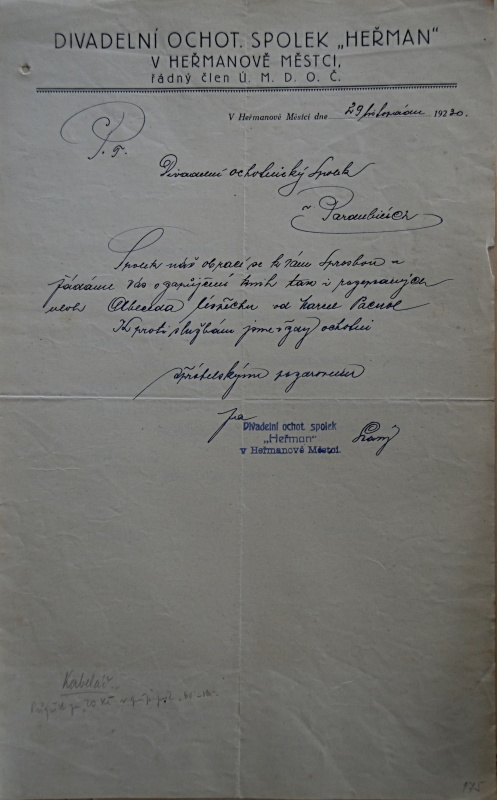 DIVADELNÍ OCHOT. SPOLEK „HEŘMAN“
V HEŘMANOVĚ MĚSTCI,
řádný člen Ú. M. D. O. Č.
V Heřmanově Městci dne 29 listopadu 1930.
P. T.
Divadelní ochotnický Spolek
v Pardubicích
Spolek náš obrací se k vám Sprosbou a
žádáme vás o zapůjčení knih tak i rozepsaných
uloh Abeceda úspěchu od Karel Pacnol
K proti službám jsme vždy ochotni
Spřátelským pozdravem
za
Divadelní ochot. spolek
„Heřman“
v Heřmanově Městci.
175